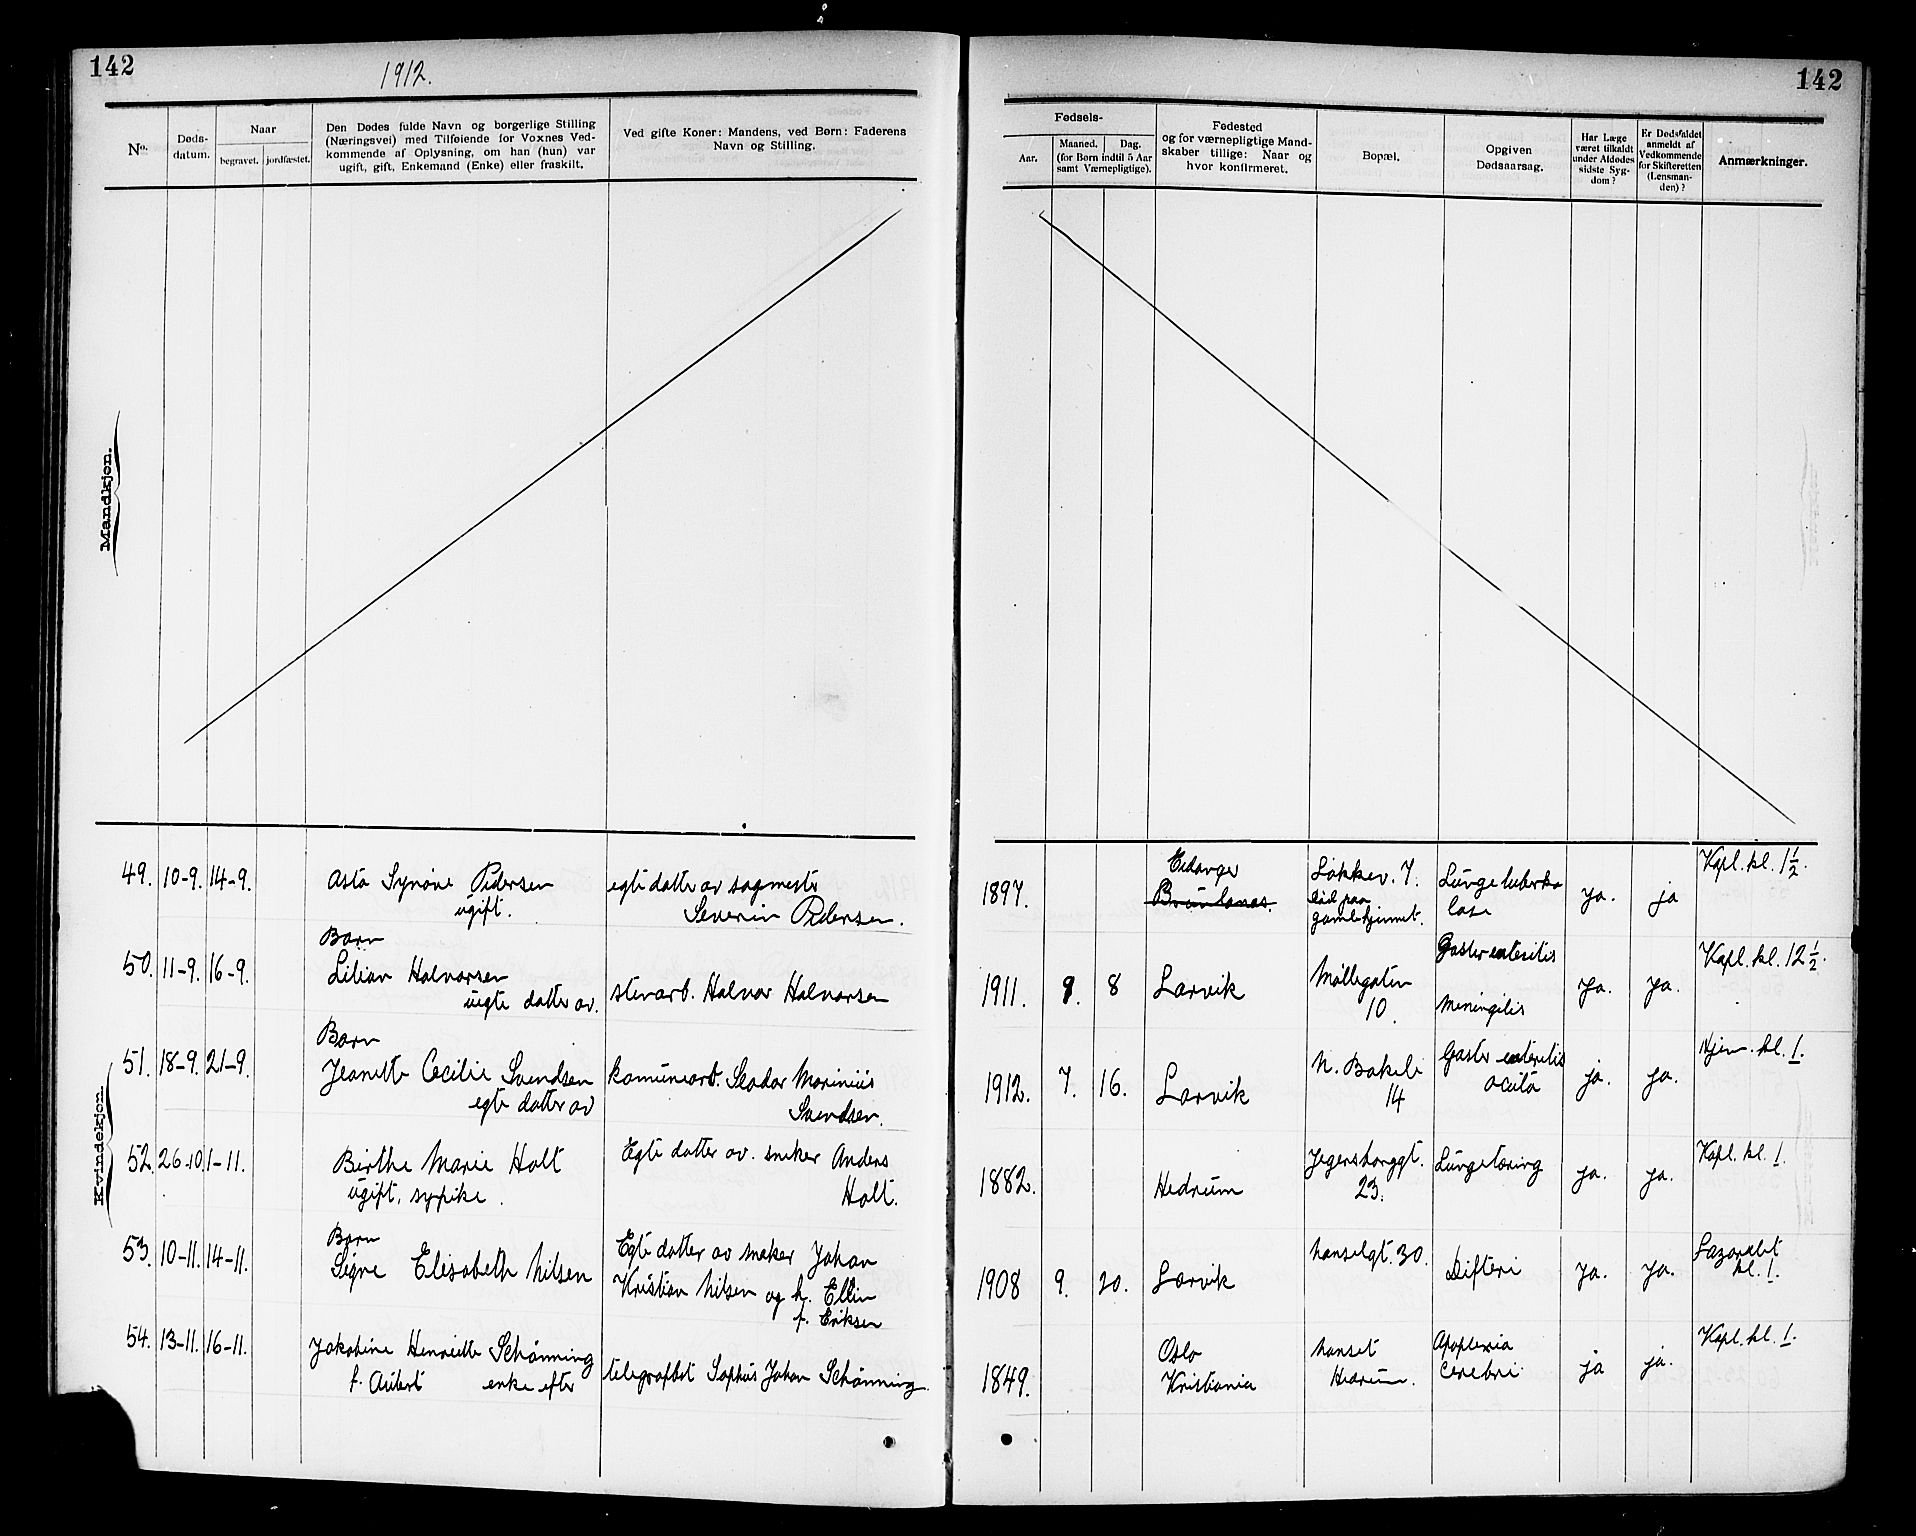 142
1912.
142
No.
Døds-
datum.
Naar
begravet.
jordfæstet.
Den Dødes fulde Navn og borgerlige Stilling
(Næringsvei) med Tilføiende for Voxnes Ved-
kommende af Oplysning, om han (hun) var
ugift, gift, Enkemand (Enke) eller fraskilt.
Ved gifte Koner: Mandens, ved Børn: Faderens
Navn og Stilling.
Fødsels-
Aar.
Maaned.
Dag.
(for Børn indtil 5 Aar
samt Værnepligtige).
Fødested
og for værnepligtige Mand-
skaber tillige: Naar og
hvor konfirmeret.
Bopæl.
Opgiven
Dødsaarsag.
Har Læge
været tilkaldt
under Afdødes
sidste Syg-
dom?
Er Dødsfaldet
anmeldt af
Vedkommende
for Skifteretten
(Lensman-
den)?
Anmærkninger.
Mandkjøn.
Kvindekjøn.
49. 10-9. 14-9.
Asta Synøve Pedersen
ugift.
egte datter av sagmester
Severin Pedersen.
1897.
Eidanger
Brunlanes.
Løkkev. 7.
død paa
gamlehjemmet.
Lungetuberku
lose
ja. ja
Kapl. kl. 1 1/2.
50. 11-9. 16-9.
Barn
Lilian Halvorsen
uegte datter av.
stenarb. Halvor Halvorsen
1911. 9. 8
Larvik
Møllegaten
10.
Gastroenteritis
Meningitis
ja. ja.
Kapl. kl. 12 1/2.
51. 18-9. 21-9.
Barn
Jeanette Cecilie Svendsen
egte datter av
komunearb. Teodor Marinius
Svendsen.
1912. 7. 16.
Larvik
N. Bakeli
14
Gastro enteritis
acuta
ja. ja.
Hjem. kl. 1.
52. 26-10 1-11.
Birthe Marie Holt
ugift, sypike.
Egte datter av. snekker Anders
Holt.
1882.
Hedrum
Jegersborggt.
23.
Lungetæring
ja. ja.
Kapl. kl. 1.
53. 10-11. 14-11.
Barn
Signe Elisabeth Nilsen
Egte datter av maker Johan
Kristian Nilsen og h. Ellin
f. Eriksen
1908 9. 20.
Larvik
Nanselgt. 30.
Difteri
ja. ja.
Lazarettet
kl. 1.
54. 13-11. 16-11.
Jakobine Henriette Schønning
f. Aubert enke efter
telegrafbst Sophus Johan Schønning.
1849.
Oslo
Kristiania
Nanset
Hedrum.
Apoplexia
Cerebri
ja ja.
Kapl. kl. 1.